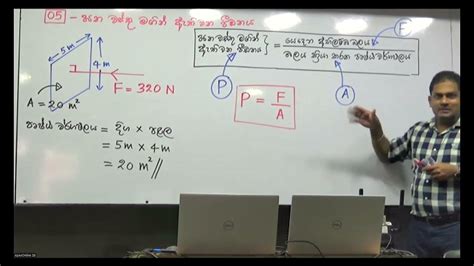 05 - ඝන වස්තු මගින් ඇතිවන පීඩනය
5m
4m
F = 320 N
A = 20 m²
ඝන වස්තු මගින්
ඇතිවන පීඩනය
=
අභිලම්බ බලය
බලය ක්‍රියා කරන පෘෂ්ඨ වර්ගඵලය
F
P
A
P = F
A
පෘෂ්ඨ වර්ගඵලය = දිග × පළල
= 5m × 4m
= 20 m² //
DELL
DELL